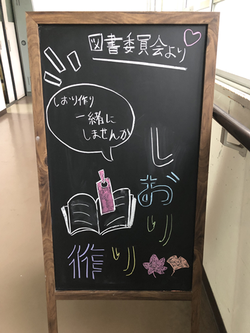 図書委員会より
しおり作り
一緒に
しませんか
しおり
作り